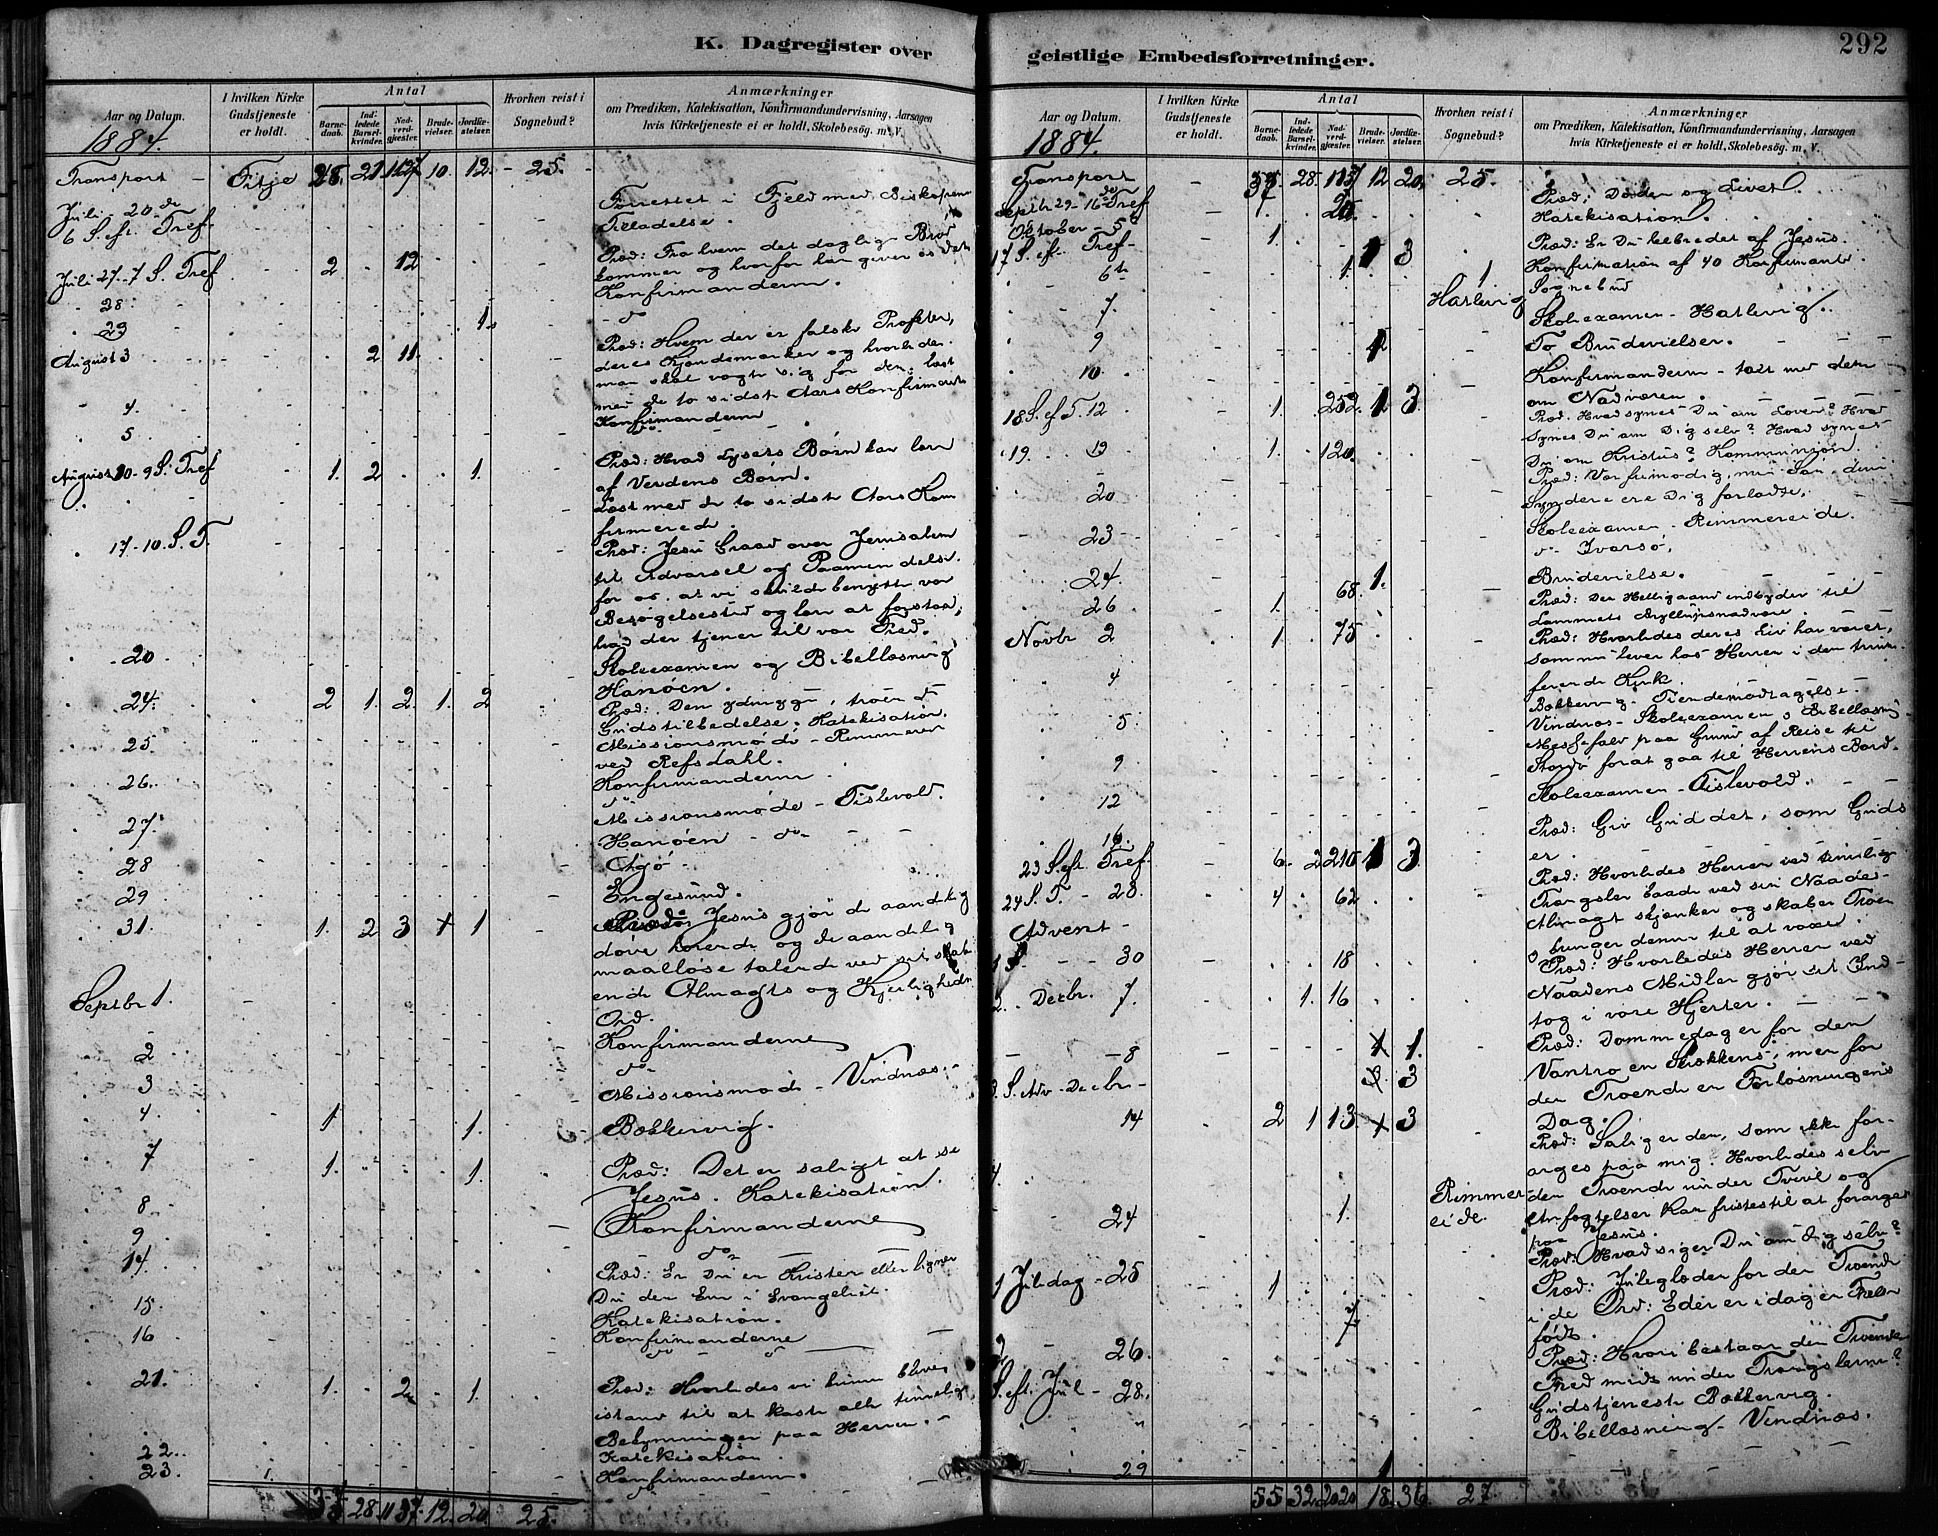 K. Dagregister over
Aar og Datum.
I hvilken Kirke Gudstjeneste er holdt.
Antal
Barnedaab.
Indledede Barselkvinder.
Nadverdgjæster.
Brudevielser.
Jordfæstelser.
Hvorhen reist i Sognebud?
Anmærkninger
om Prædiken, Katekisation, Konfirmandundervisning, Aarsagen
hvis Kirketjeneste ei er holdt, Skolebesøg. m. V.
1884.
Transport - Fitje 21 10. 12. - 25.
Juli 20de
6 S. eft. Tref.
Forrettet i Fjeld med Biskopens
Tilladelse.
Juli 27 - 7 S. Tref 2 12
Præd: Fra hvem det daglige Brød
kommer og hvorfor han giver os det
Konfirmanderne.
28
do
29 1.
August 3 2 11.
Præd: Hvem der er falske Profeter,
deres Kjendemærker og hvorledes
man skal vogte sig for dem; læst
med de to sidste Aars Konfirmerede
4.
Konfirmanderne
5
do
August 10 - 9 S. Tref 1. 2 1.
Præd: Hvad Lysets Børn kan lære
af Verdens Børn.
Læst med de to sidste Aars Kon
firmerede.
17 - 10. S. T.
Præd: Jesu Graad over Jerusalem
til Advarsel og Paamindelse
for os, at vi skulde benytte vor
Besøgelsestid og lære at forstaa,
hvad der tjener til vor Fred.
20
Skoleexamen og Bibellæsning
Hanøen.
24. 2 1. 2. 1. 2
Præd: Den ydmyge, troende
Gudstilbedelse. Katekisation.
25.
Missionsmøde - Rimmerei
ved Refsdahl.
26.
Konfirmanderne.
do
Missionsmøde - Tislevold.
27.
Hanøen - do
28
Agø -
29
Engesund.
31. 1. 2 3 1
Præd: Jesus gjør de aandelig
døve hørende og de aandelig
maalløse talende ved sit skab
ende Almagts og Kjerligheds
Ord.
Septbr 1.
Konfirmanderne
2
do
3
Missionsmøde - Vindnæs.
4 1 1.
Bækkervig.
7 1. 1.
Præd: Det er saligt at se
Jesus. Katekisation.
8
Konfirmanderne
9
do
14.
Præd: Er Du en Kristen eller ligner
Du den Ene i Evangeliet.
Katekisation.
15.
Konfirmanderne
16
do
21. 1. 2 1.
Præd: Hvorledes vi kunne blive
istand til at kaste alle timelige
Bekymringer paa Herren.
Katekisation
22.
Konfirmanderne.
23.
do
28. 1137. 12. 20. 25.
geistlige Embedsforretninger.
292
Aar og Datum.
I hvilken Kirke Gudstjeneste er holdt.
Antal
Barnedaab.
Indledede Barselkvinder.
Nadverdgjæster.
Brudevielser.
Jordfæstelser.
Hvorhen reist i Sognebud?
Anmærkninger
om Prædiken, Katekisation, Konfirmandundervisning, Aarsagen
hvis Kirketjeneste ei er holdt, Skolebesøg. m. V.
1884.
Transport - 28. 12 20. 25.
Septbr 29 - 16de Tref
Præd: Døden og Livet.
Katekisation.
Oktober - 5te
17 S. eft. Tref - 1. 3
Præd: Er Du helbredet af Jesus.
Konfirmation af 40 Konfirmander.
6te 1. 1
Sognebud
7. Hatlevig
Skoleexamen - Hatlevig.
9
To Brudevielser.
10.
Konfirmanderne - talt med dem
om Nadveren.
18 S. ef T. 12 1. 252 3
Præd. Hvad synes Du om Loven? Hvad
synes Du om Dig selv? Hvad synes
Du om Kristus? Kommunion.
19. 19 1. 120.
Præd: Vær frimodig, min Søn, dine
Synder ere Dig forladte.
20
Skoleexamen - Rimmereide.
23
do - Ivarsø,
24. 1.
Brudevielse.
26 1. 68
Præd: Den Helligaand indbyder til
Lammets Bryllupsnadvere.
Novbr 2 1 75
Præd: Hvorledes deres Liv har været,
som nu lever hos Herren i den trium
ferende Kirke.
4
Bækkervig - Tiendemodtagelse.
5
Vindnæs - Skoleexamen & Bibellæsning
9
Messefald paa Grund af Reise til
Stordø forat gaa til Herrens Bord.
12
Skoleexamen - Tislevold.
16.
23 S. eft Tref. 6. 2 3
Præd: Giv Gud det, som Guds
er.
24 S. T. - 23. 4 62
Præd: Hvorledes Herren ved timelige
Trængsler baade ved sin Naades-
Almagt skjenker og skaber Troen
& tvinger denne til at voxe.
Advent -
30 18
Præd: Hvorledes Herren ved
Naadens Midler gjør sit Ind-
tog i vore Hjerter.
2. Decbr. 7. 1. 16
Præd: Dommedag er for den
Vantro en Skrækkens; men for
den Troende er Forløsningens
Dag.
8 1.
3. S. Adv - Decbr - 3
14 2 1 13 3
Præd: Salig er den, som ikke for-
arges paa mig. Hvorledes selv
den Troende under Tvivl og
Anfægtelser kan fristes til at forarges
paa Jesus.
4
24 1. Rimmereide.
Præd: Hvad siger Du om dig selv?
1 Juledag - 25 1
Præd: Juleglæden for den Troende
i de Ord: Eder er i dag en Frelser
født.
2 - 26. 7
Præd: Hvori bestaar den Troendes
Fred midt under Trængslerne?
S. eft. Jul - 28.
Gudstjeneste Bækkervig.
Bibellæsning - Vindnæs.
29 1
55 32 2020 18. 36. 27.